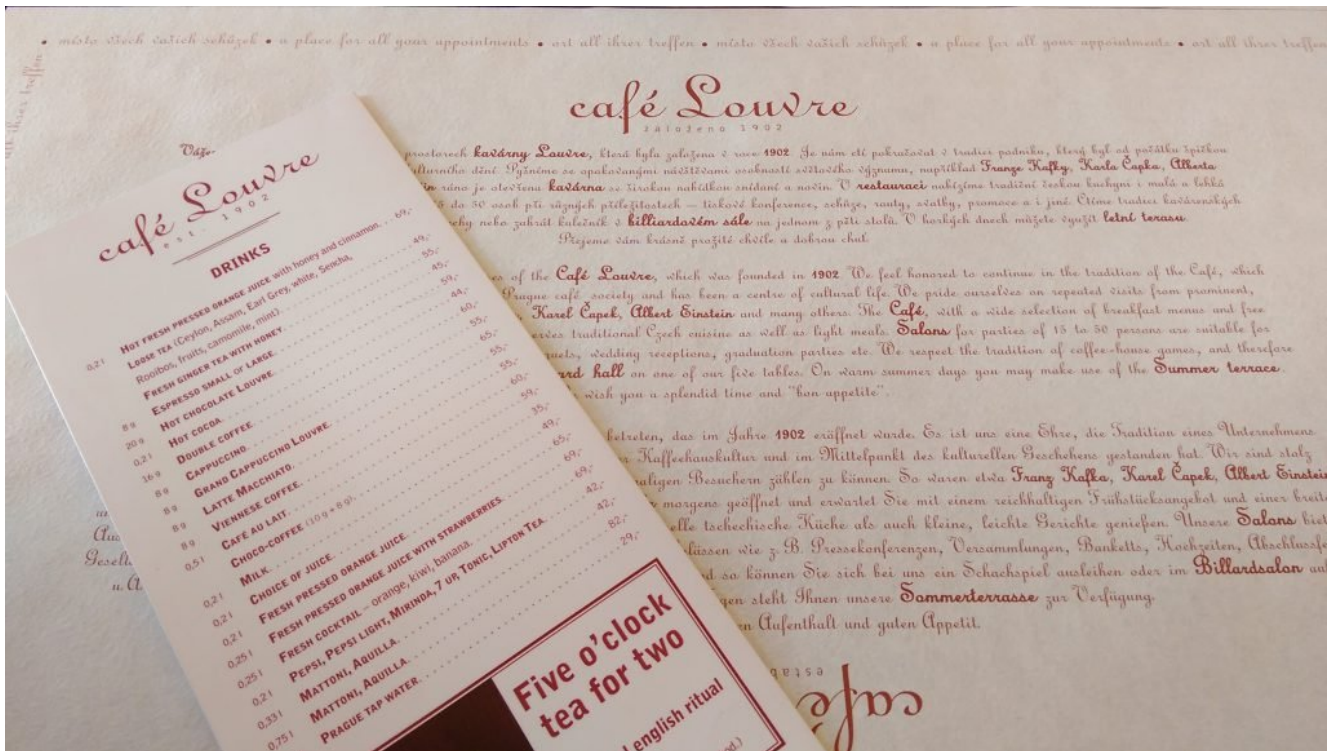 • místo všech vašich schůzek • a place for all your appointments • ort all ihrer treffen • místo všech vašich schůzek • a place for all your appointments • ort all ihrer treffen
café Louvre
založeno 1902
Váže
prostorech kavárny Louvre, která byla založena v roce 1902. Je nám ctí pokračovat v tradici podniku, který byl od počátku špičkou
kulturního dění. Pyšníme se opakovanými návštěvami osobností světového významu, například Franze Kafky, Karla Čapka, Alberta
ráno je otevřena kavárna se širokou nabídkou snídaní a novin. V restauraci nabízíme tradiční českou kuchyni i malá a lehká
do 50 osob při různých příležitostech – tiskové konference, schůze, rauty, svatby, promoce a i jiné. Ctíme tradici kavárenských
nebo zahrát kulečník v billiardovém sále na jednom z pěti stolů. V horkých dnech můžete využít letní terasu.
Přejeme vám krásně prožité chvíle a dobrou chuť.
es of the Café Louvre, which was founded in 1902. We feel honored to continue in the tradition of the Café, which
Prague café society and has been a centre of cultural life. We pride ourselves on repeated visits from prominent,
, Karel Čapek, Albert Einstein and many others. The Café, with a wide selection of breakfast menus and free
erves traditional Czech cuisine as well as light meals. Salons for parties of 15 to 50 persons are suitable for
quets, wedding receptions, graduation parties etc. We respect the tradition of coffee-house games, and therefore
ard hall on one of our five tables. On warm summer days you may make use of the Summer terrace.
wish you a splendid time and "bon appetite".
betreten, das im Jahre 1902 eröffnet wurde. Es ist uns eine Ehre, die Tradition eines Unternehmens
r Kaffeehauskultur und im Mittelpunkt des kulturellen Geschehens gestanden hat. Wir sind stolz
maligen Besuchern zählen zu können. So waren etwa Franz Kafka, Karel Čapek, Albert Einstein
morgens geöffnet und erwartet Sie mit einem reichhaltigen Frühstücksangebot und einer breite
elle tschechische Küche als auch kleine, leichte Gerichte genießen. Unsere Salons biet
lässen wie z. B. Pressekonferenzen, Versammlungen, Banketts, Hochzeiten, Abschlussfe
d so können Sie sich bei uns ein Schachspiel ausleihen oder im Billardsalon au
gen steht Ihnen unsere Sommerterrasse zur Verfügung.
n Aufenthalt und guten Appetit.
Gesell
u. A.
estab
café
café Louvre
est. 1902
DRINKS
0,2 l HOT FRESH PRESSED ORANGE JUICE with honey and cinnamon 69,-
LOOSE TEA (Ceylon, Assam, Earl Grey, white, Sencha, 49,-
Rooibos, fruits, camomile, mint)
FRESH GINGER TEA WITH HONEY 55,-
8 g ESPRESSO SMALL OR LARGE 45,-
20 g HOT CHOCOLATE LOUVRE 59,-
0,2 l HOT COCOA 44,-
16 g DOUBLE COFFEE 60,-
8 g CAPPUCCINO 55,-
8 g GRAND CAPPUCCINO LOUVRE 65,-
8 g LATTE MACCHIATO 55,-
8 g VIENNESE COFFEE 55,-
0,5 l CAFÉ AU LAIT 60,-
CHOCO-COFFEE (10 g + 8 g) 59,-
0,2 l MILK 35,-
0,2 l CHOICE OF JUICE 49,-
0,2 l FRESH PRESSED ORANGE JUICE 65,-
0,25 l FRESH PRESSED ORANGE JUICE WITH STRAWBERRIES 69,-
0,25 l FRESH COCKTAIL – orange, kiwi, banana 69,-
0,2 l PEPSI, PEPSI LIGHT, MIRINDA, 7 UP, TONIC, LIPTON TEA 42,-
0,33 l MATTONI, AQUILLA 42,-
0,75 l MATTONI, AQUILLA 82,-
PRAGUE TAP WATER 29,-
Five o'clock
tea for two
english ritual